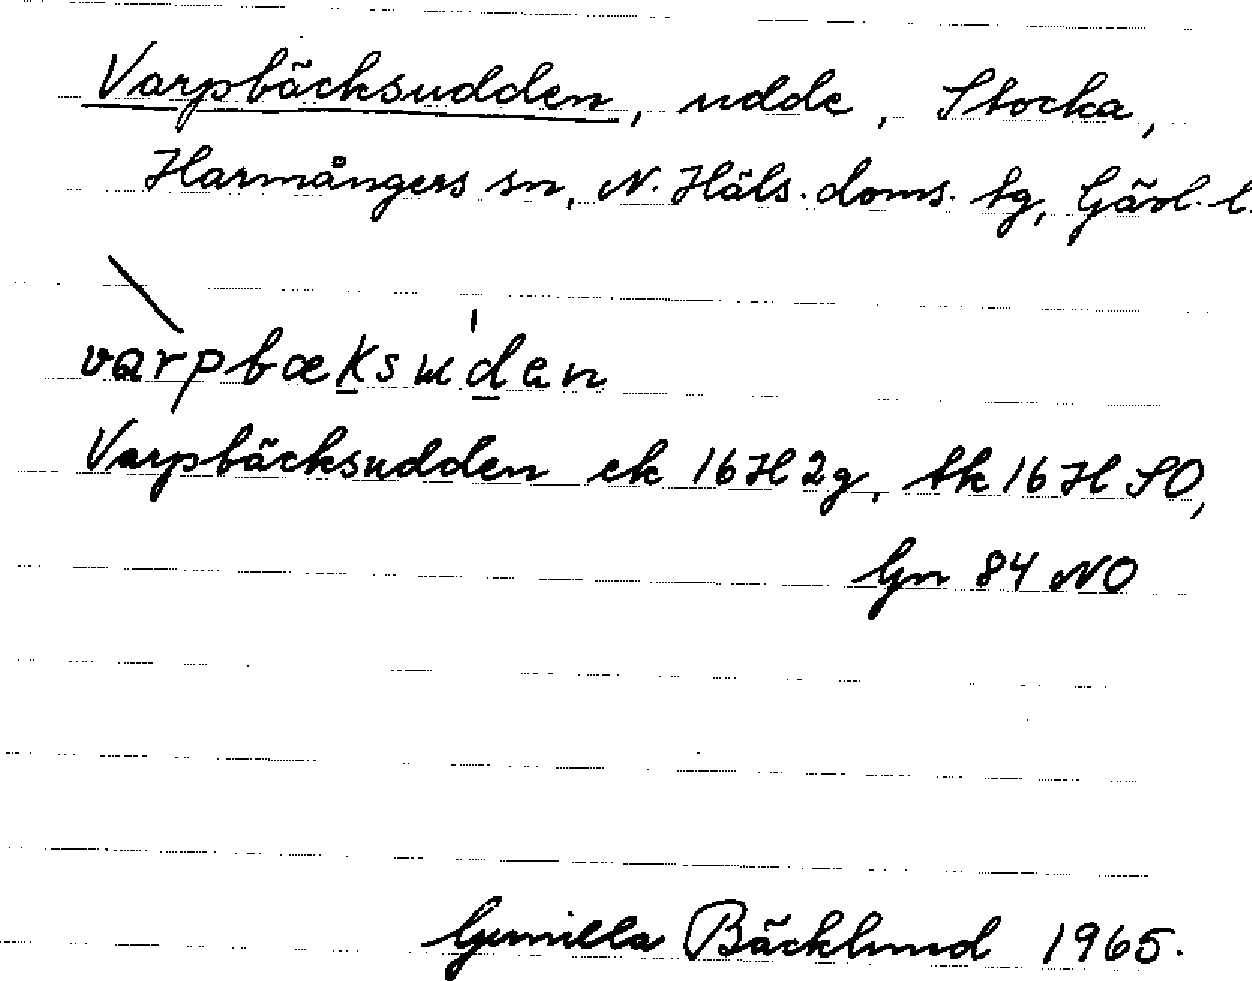 Varpbäcksudden, udde, Stocka,
Harmångers sn, N. Häls. doms. tg, Gävl. l.
varpbæksuden
Varpbäcksudden ek 16H2g, tk 16H SO,
Gn 84 NO
Gunilla Bäcklund 1965.